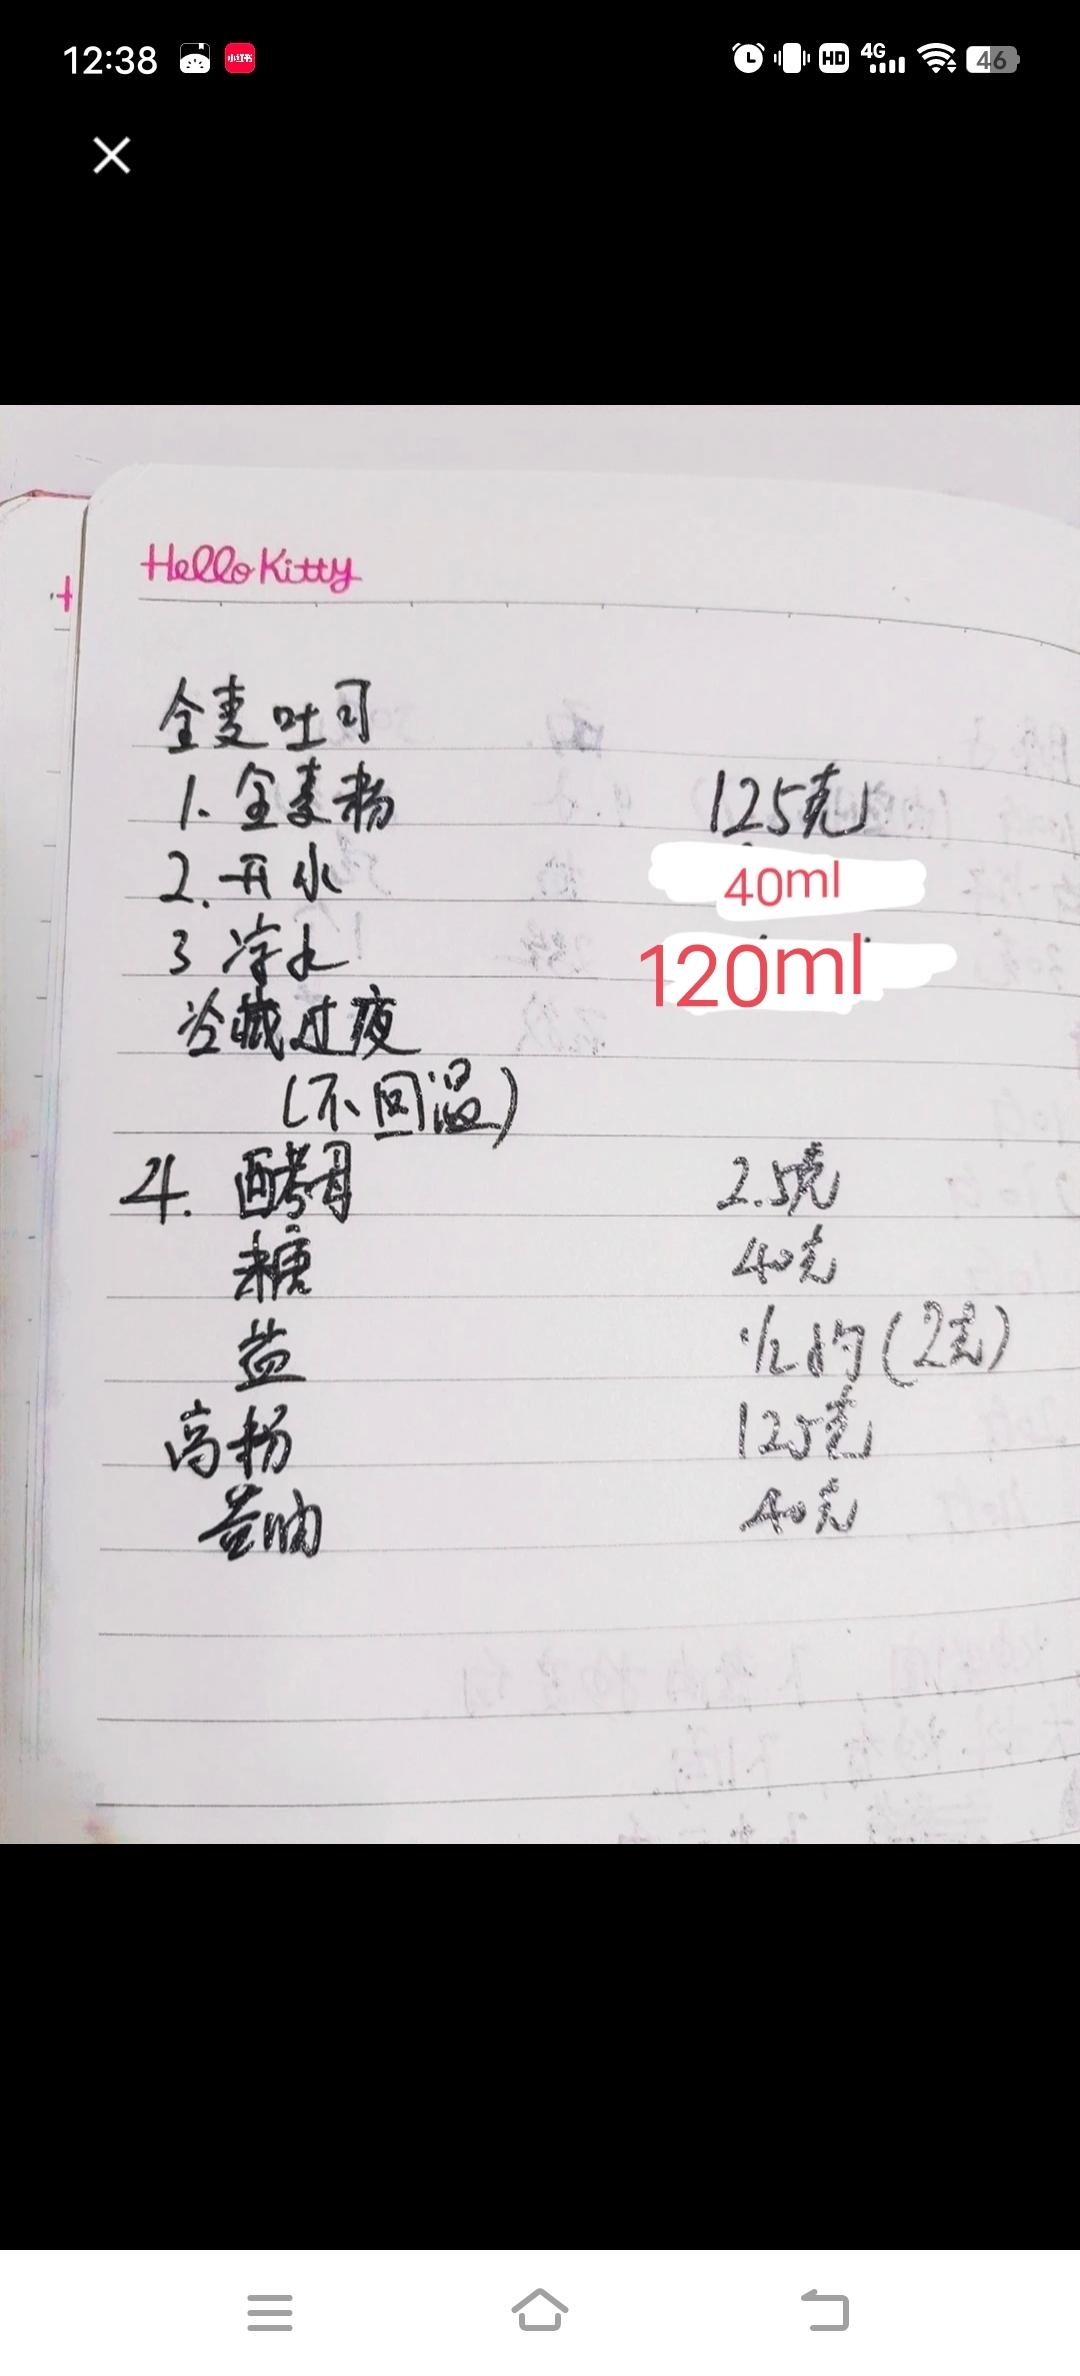 12:38
小红书
HD
4G
46
Hello Kitty
全麦吐司
1. 全麦粉 125克
2. 开水 40ml
3 冷水 120ml
冷藏过夜
(不回温)
4. 酵母 2.5克
糖 40克
盐 1/2 (2克)
高粉 125克
黄油 40克